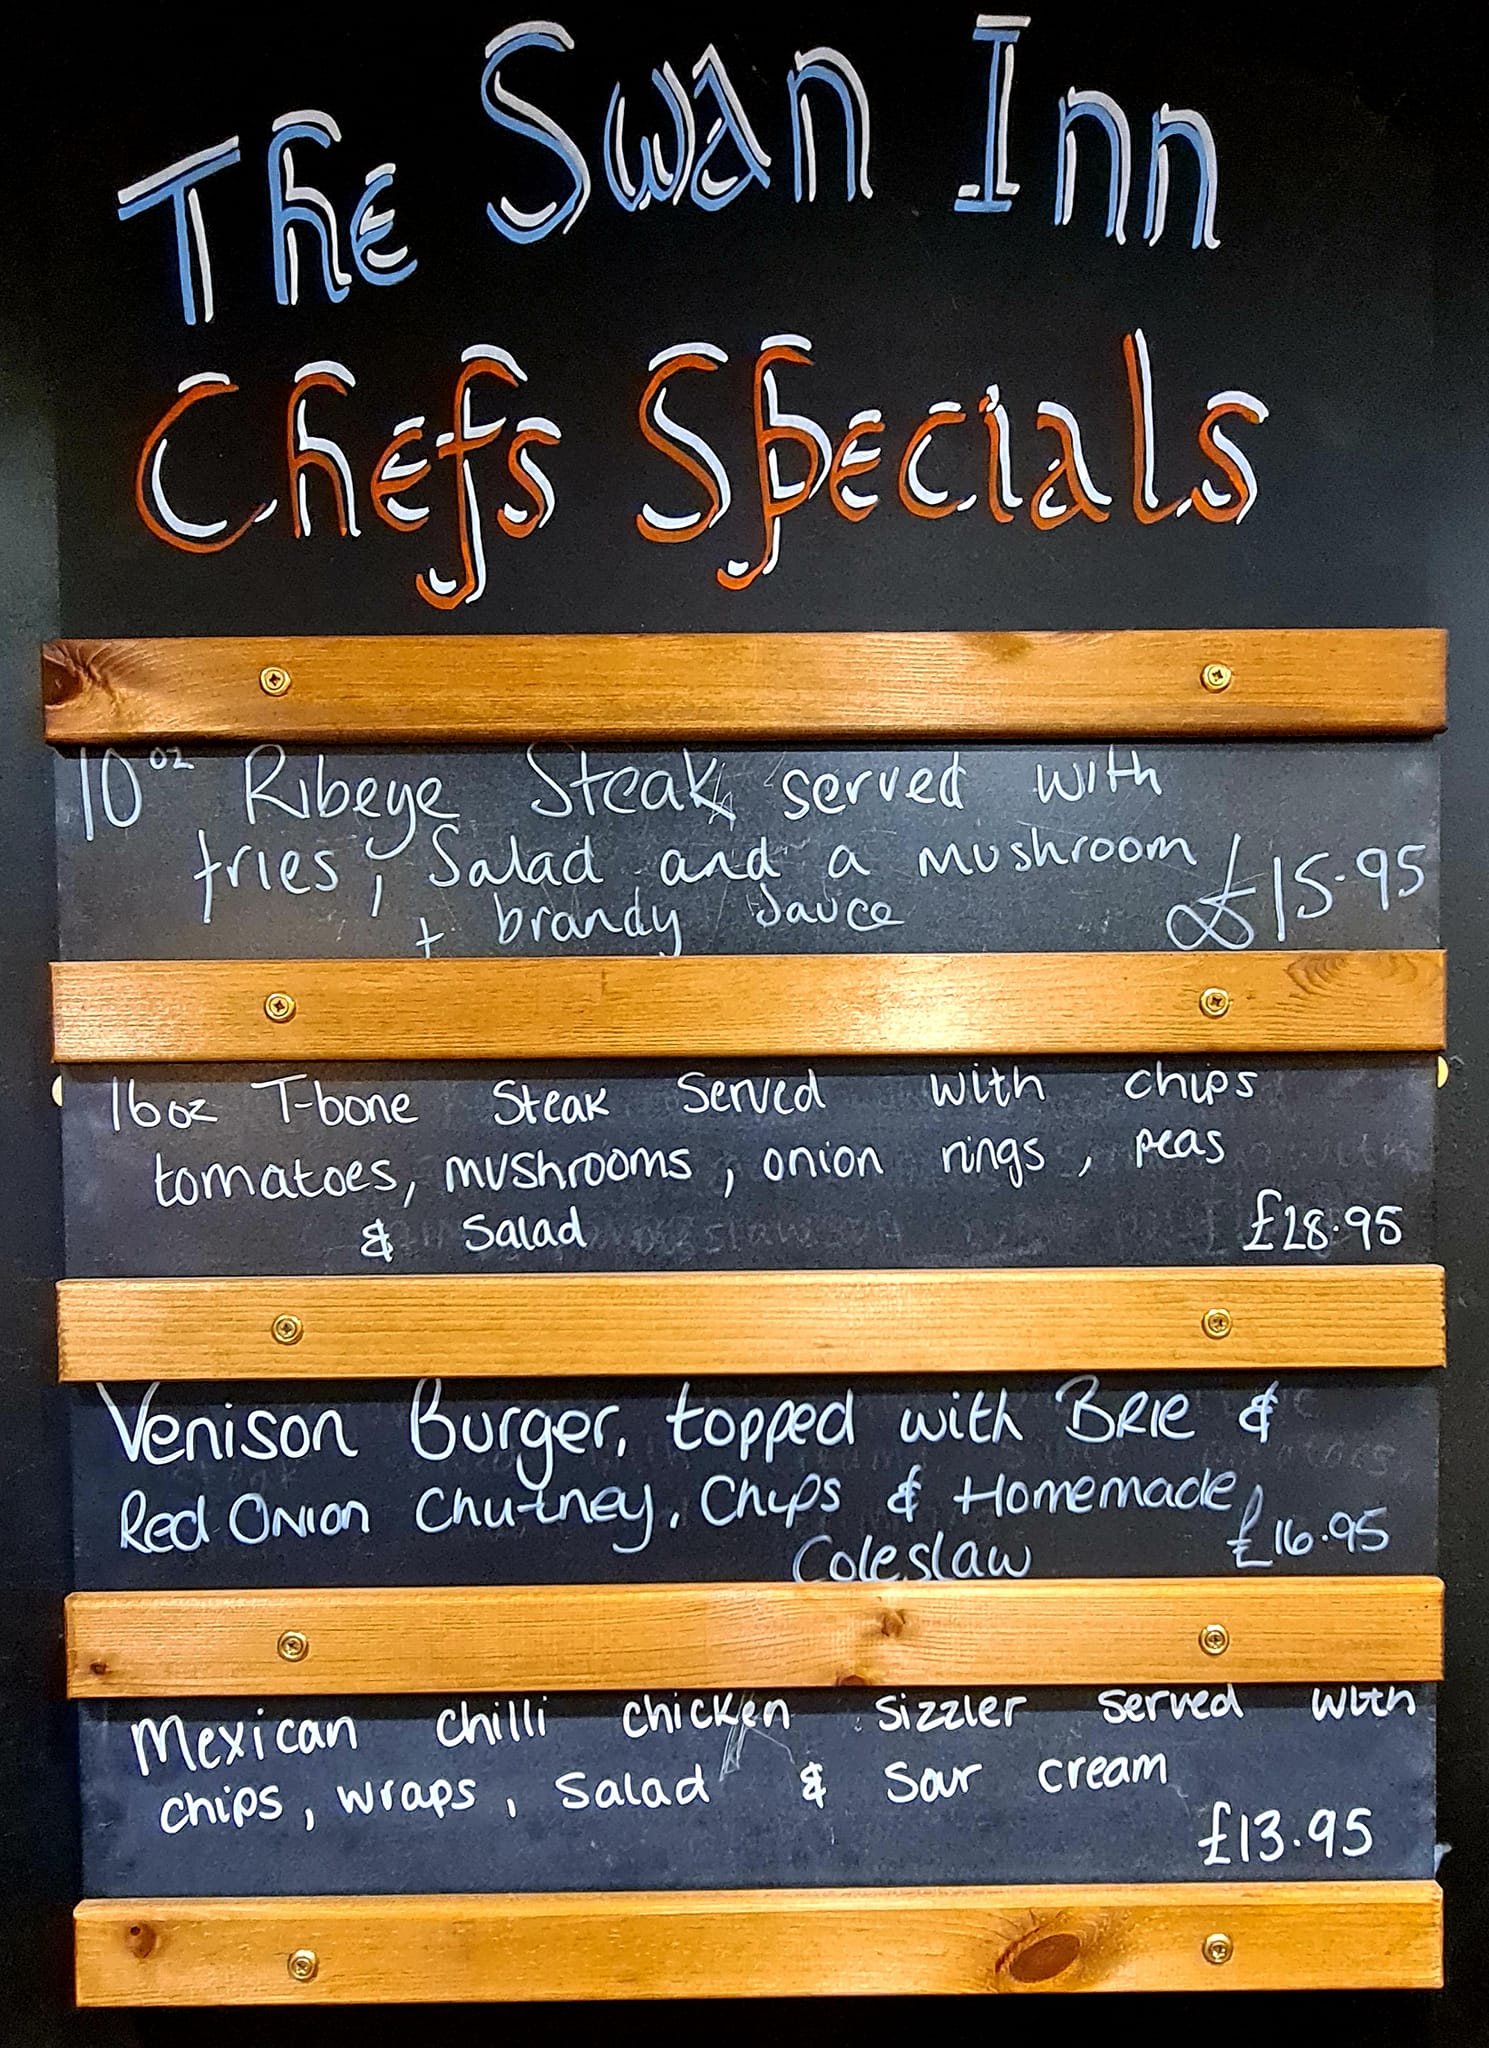 The Swan Inn
Chefs Specials
10oz Ribeye Steak served with
fries, Salad and a mushroom
+ brandy sauce £15.95
16oz T-bone Steak Served with chips
tomatoes, mushrooms, onion rings, peas
& Salad £28.95
Venison Burger, topped with Brie &
Red Onion Chutney, Chips & Homemade
Coleslaw £16.95
Mexican chilli chicken sizzler served with
chips, wraps, salad & sour cream
£13.95